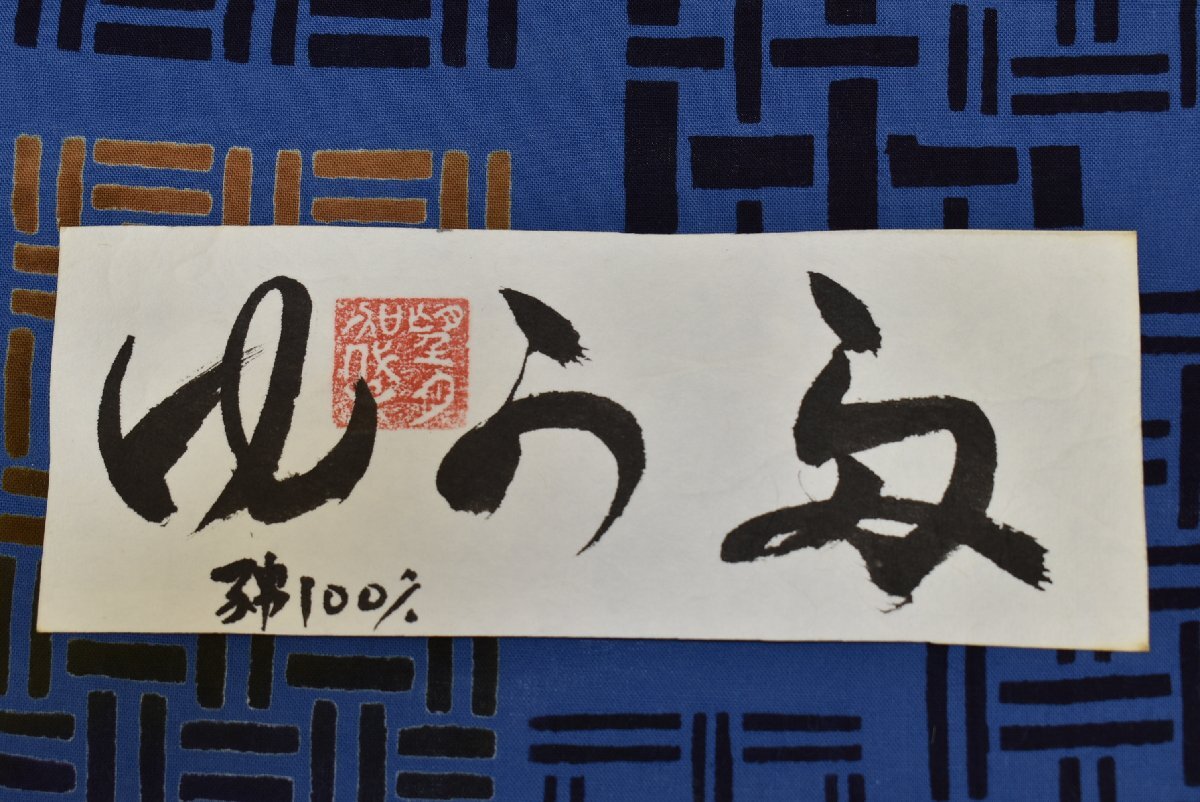 ゆかた
綿100%